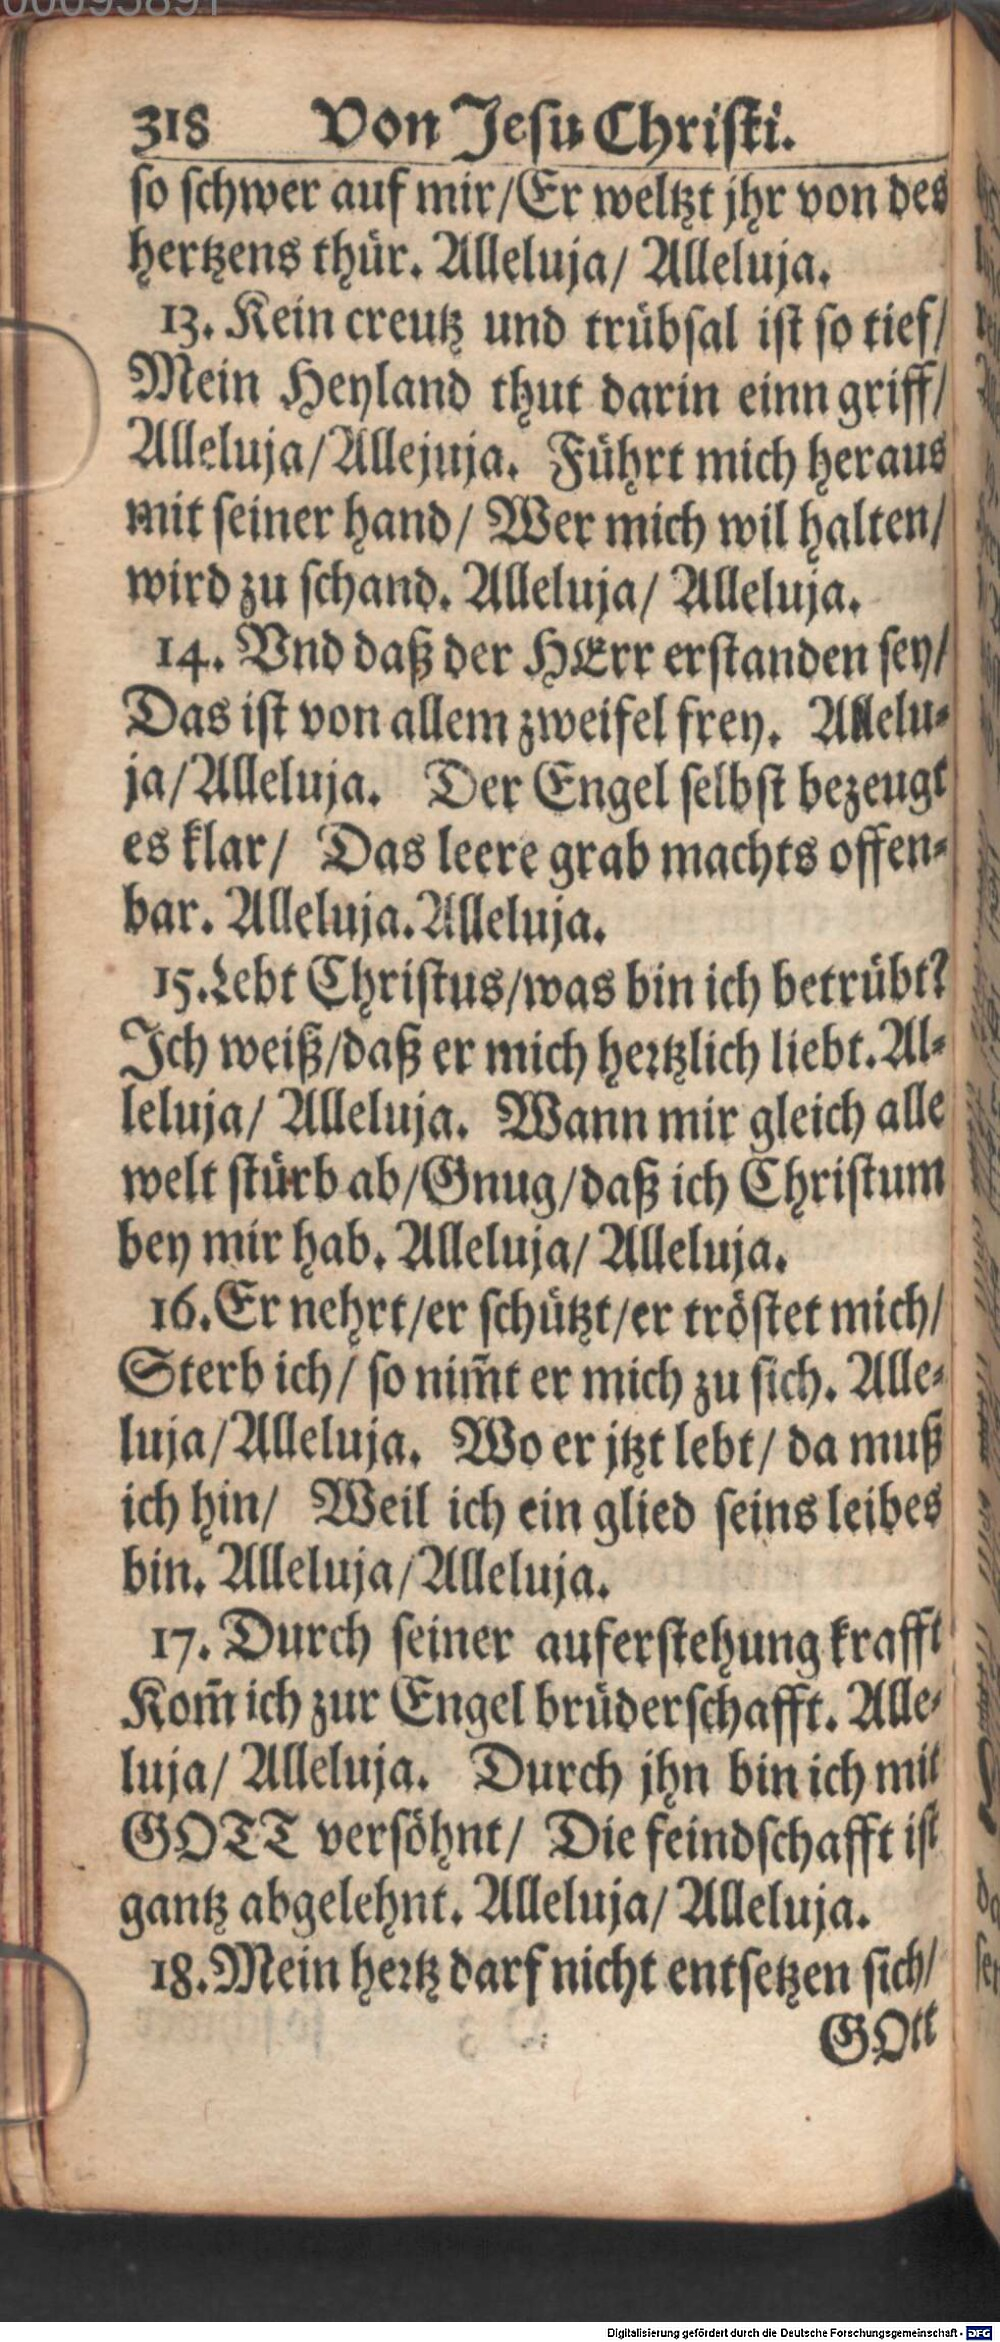 00095891
318 Von Jesu Christi.
so schwer auf mir/Er weltzt jhr von des
hertzens thür. Alleluja/ Alleluja.
13. Kein creutz und trübsal ist so tief/
Mein Heyland thut darin einn griff/
Alleluja/Allejuja. Führt mich heraus
mit seiner hand/ Wer mich wil halten/
wird zu schand. Alleluja/ Alleluja.
14. Vnd daß der HErr erstanden sey/
Das ist von allem zweifel frey. Allelu-
ja/Alleluja. Der Engel selbst bezeugt
es klar/ Das leere grab machts offen-
bar. Alleluja. Alleluja.
15. Lebt Christus/was bin ich betrübt?
Ich weiß/daß er mich hertzlich liebt. Al-
leluja/ Alleluja. Wann mir gleich alle
welt stürb ab/Gnug/daß ich Christum
bey mir hab. Alleluja/ Alleluja.
16. Er nehrt/er schützt/er tröstet mich/
Sterb ich/ so nim̄t er mich zu sich. Alle-
luja/Alleluja. Wo er jtzt lebt/ da muß
ich hin/ Weil ich ein glied seins leibes
bin. Alleluja/Alleluja.
17. Durch seiner auferstehung krafft
Kom̄ ich zur Engel brüderschafft. Alle-
luja/ Alleluja. Durch jhn bin ich mit
GOTT versöhnt/ Die feindschafft ist
gantz abgelehnt. Alleluja/ Alleluja.
18. Mein hertz darf nicht entsetzen sich/
GOtt
Digitalisierung gefördert durch die Deutsche Forschungsgemeinschaft - DFG